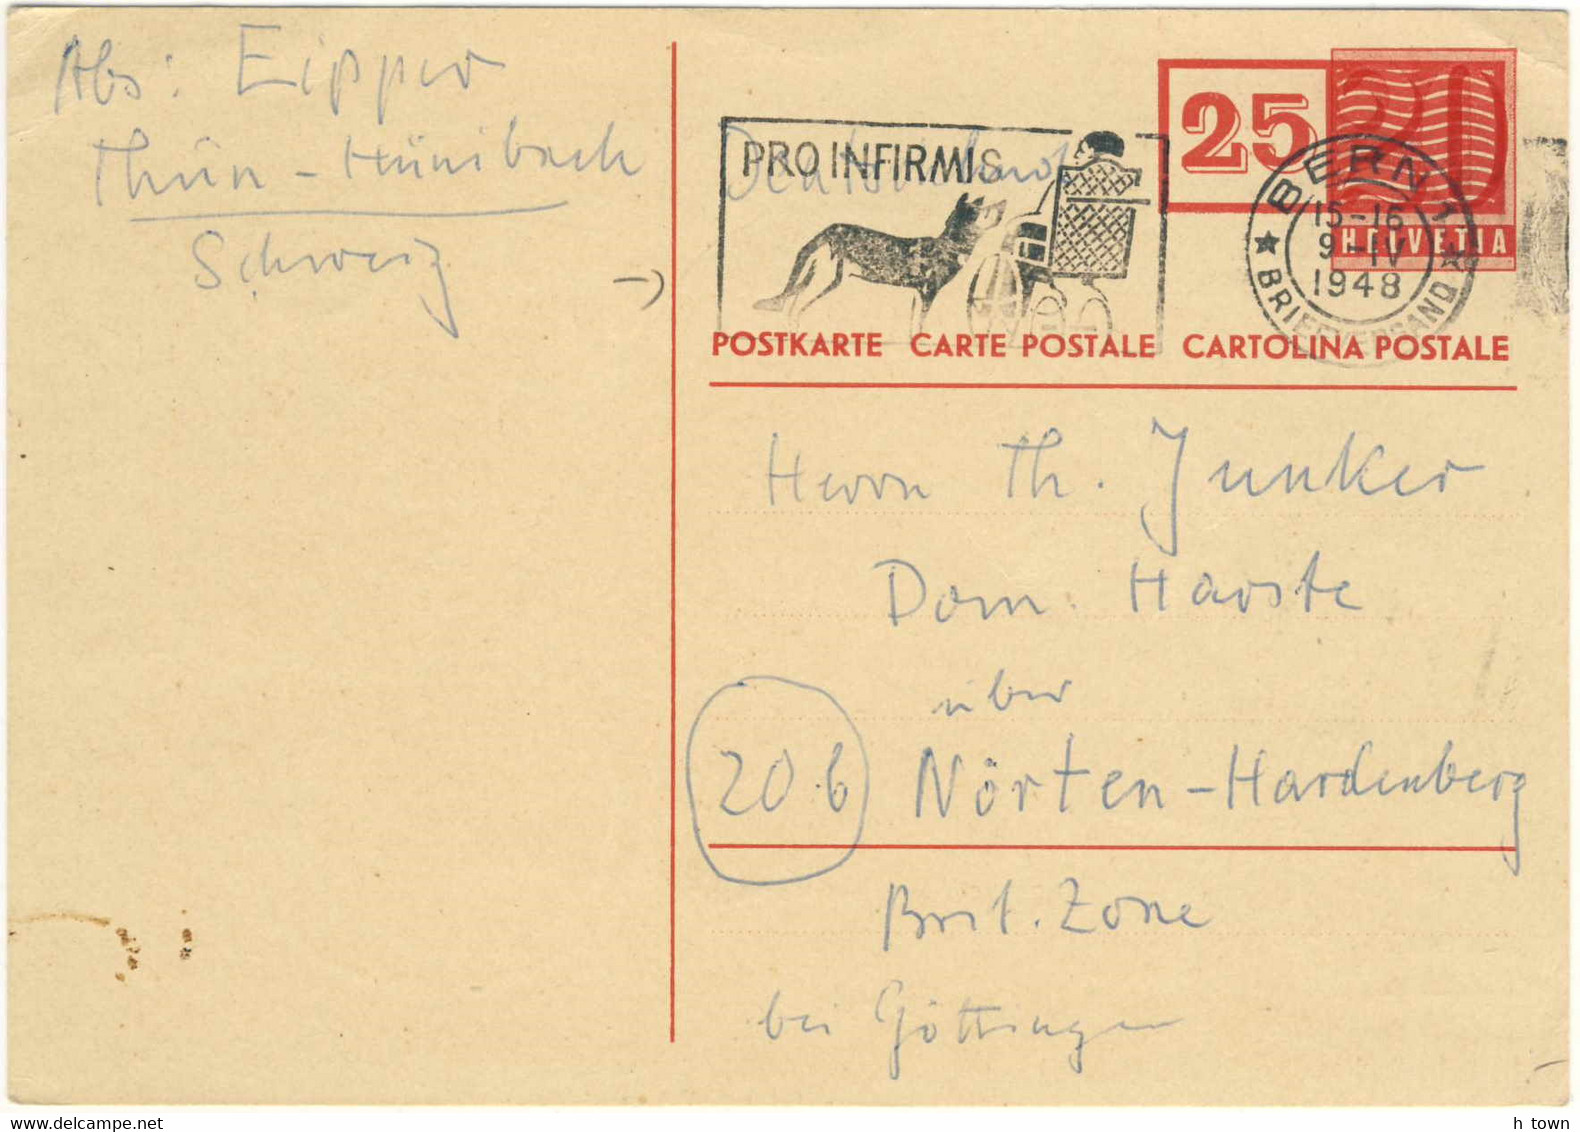 Abs: Eipper
Thun-Hünibach
Schweiz
25
20
HELVETIA
PRO INFIRMIS
Deutschland
BERN 1
15-16
9-IV
1948
BRIEFVERSAND
POSTKARTE CARTE POSTALE CARTOLINA POSTALE
Herrn Th. Junker
Dom. Harste
über
20b Nörten-Hardenberg
Brit. Zone
bei Göttingen
www.delcampe.net
h_town